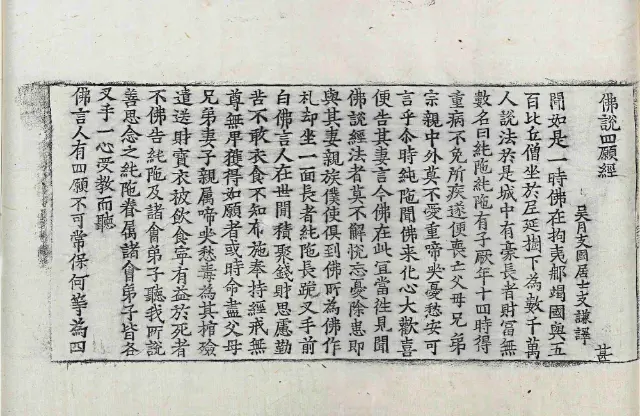 佛說四願經
甚
吳月支國居士支謙譯
聞如是一時佛在拘夷那竭國與五
百比丘僧坐於尼延樹下為數千萬
人說法於是城中有豪長者財富無
數名曰純陁純陁有子厥年十四時得
重病不免所疾遂便喪亡父母兄弟
宗親中外莫不愛重啼哭憂愁安可
言乎尒時純陁聞佛来化心大歡喜
便告其妻言今佛在此宜當往見聞
佛說經法者莫不解悅忘憂除患即
與其妻親族僕使俱到佛所為佛作
礼却坐一面長者純陁長跪叉手前
白佛言人在世間積聚錢財思慮勤
苦不敢衣食不知布施奉持經戒無
尊無卑獲得如願者或時命盡父母
兄弟妻子親属啼哭愁毒為其棺殮
遣送財寶衣被飲食寧有益於死者
不佛告純陁及諸會弟子聽我所說
善思念之純陁眷属諸會弟子皆各
叉手一心受教而聽
佛言人有四願不可常保何等為四